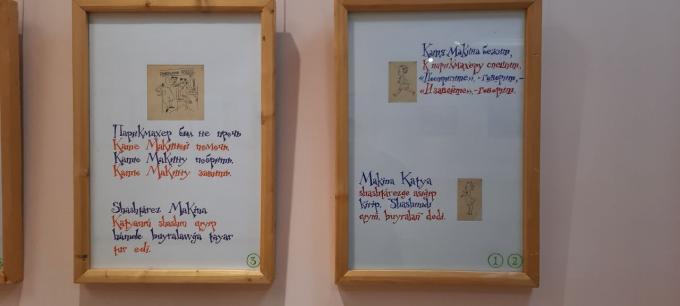 Парикмахер был не прочь
Кате Макиной помочь.
Катю Макину побрить.
Катю Макину завить.
Shashtárez Makina
Katyanıń shashın qırıp
hámde buyralawǵa tayar
tur edi.
3
Катя Макина бежит,
К парикмахеру спешит,
«Постригите», - говорит, -
«И завейте», - говорит.
Makina Katya
shashtárezge asıǵıp
kirip, Shashımdı
qırıń, buyralań dedi.
1 2